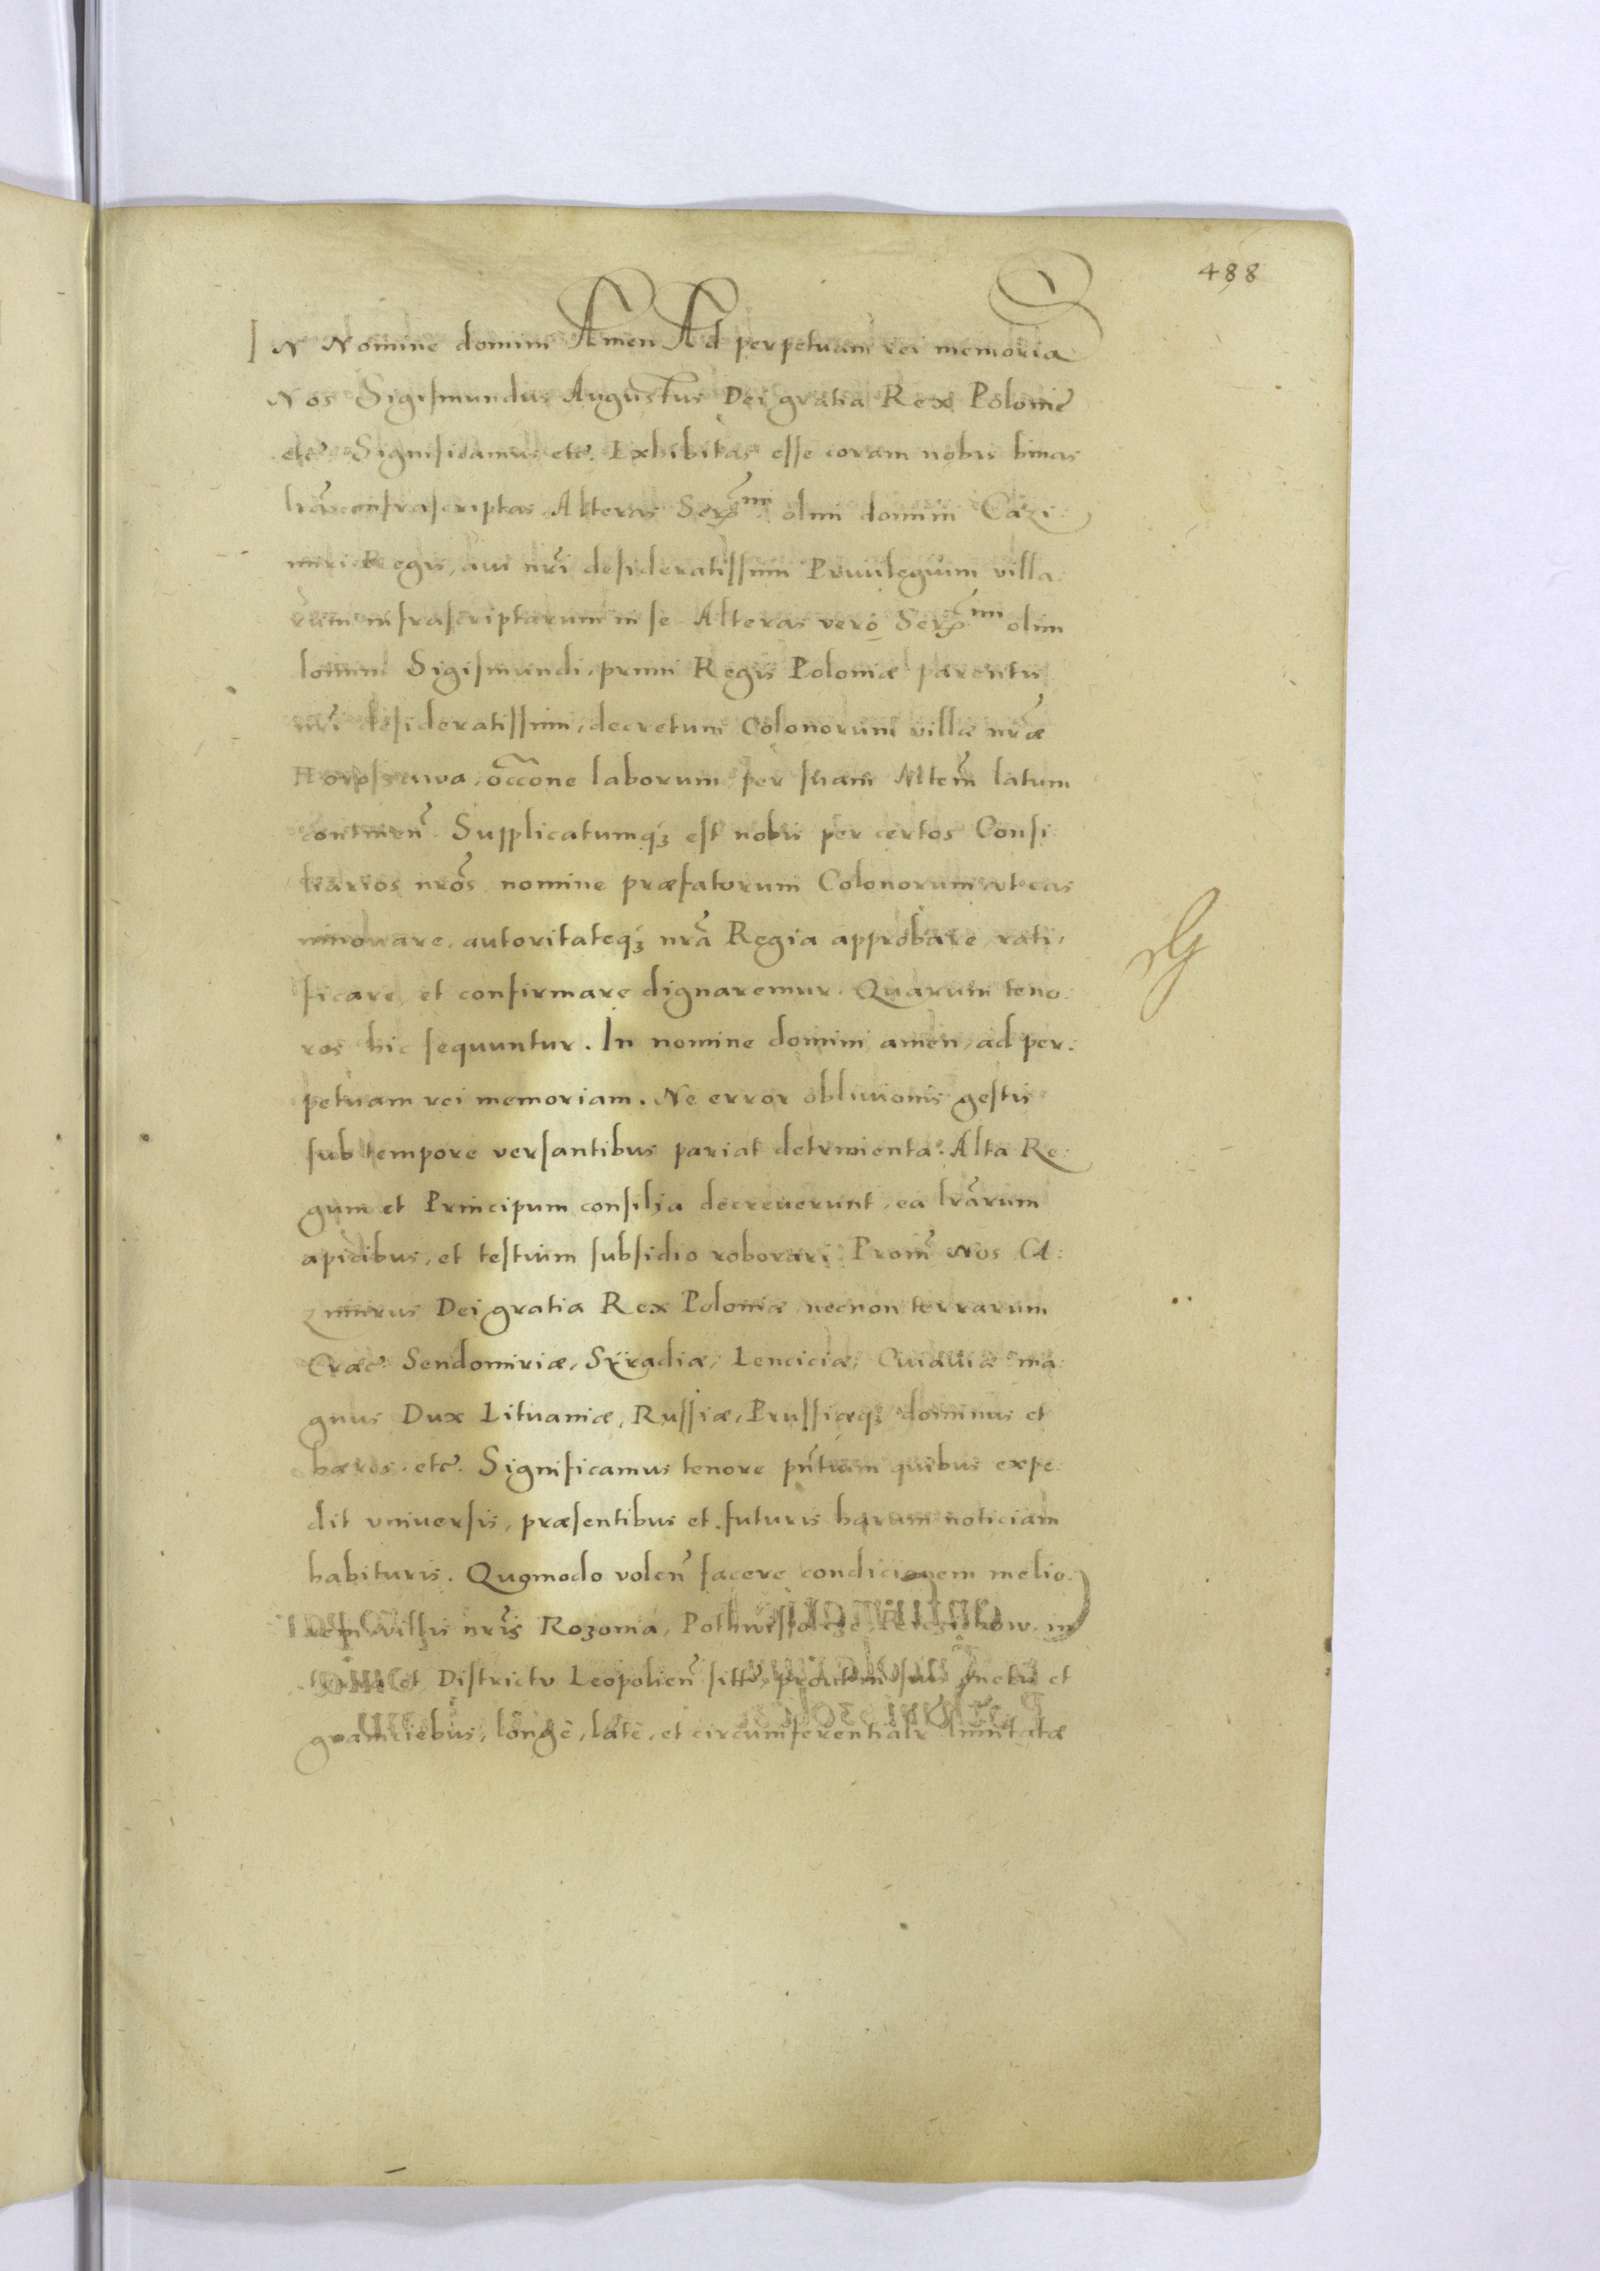 488
IN Nomine domini Amen Ad perpetuam rei memoria
Nos Sigismundus Augustus Dei gratia Rex Polonię
etc̃. Significamus etc̃. Exhibitas esse coram nobis binas
lr̃as infrascriptas Alteras Ser̃mi olim domini Cazi:
miri Regis, aui nr̃i desideratissimi Priuilegium villa:
rum infrascriptarum in se Alteras verò Ser̃mi olim
domini Sigismundi, primi Regis Poloniæ parentis
nr̃i desideratissimi, decretum Colonorum villæ nr̃æ
occõne laborum per suam Mtem̃ latum
continen̄. Supplicatumq́ȝ est nobis per certos Consi:
liarios nrõs nomine præfatorum Colonorum vt eas
innouare, autoritateq́ȝ nr̃a Regia approbare, rati:
ficare, et confirmare dignaremur. Quarum teno:
res hic sequuntur. In nomine domini amen, ad per:
petuam rei memoriam. Ne error obliuionis gestis
sub tempore versantibus pariat detrimenta. Alta Re:
gum et Principum consilia decreuerunt, ea lr̃arum
apicibus, et testium subsidio roborari. Proin̄ Nos Ca:
zimirus Dei gratia Rex Poloniæ necnon terrarum
Crac̃. Sendomiriæ, Syradiæ, Lenciciæ, Cuiauiæ ma:
gnus Dux Lituaniæ, Russiæ, Prussiæq́ȝ dominus et
hæres. etc̃. Significamus tenore pn̄tium quibus expe:
dit vniuersis, præsentibus et futuris harum noticiam
habituris. Quomodo volen̄ facere condicionem melio:
rem villis nr̃is Rozonia, in
terra et Districtu Leopolien̄ sitis, prout in suis metis et
graniciebus, longè, latè, et circumferentialr̃ limitatæ